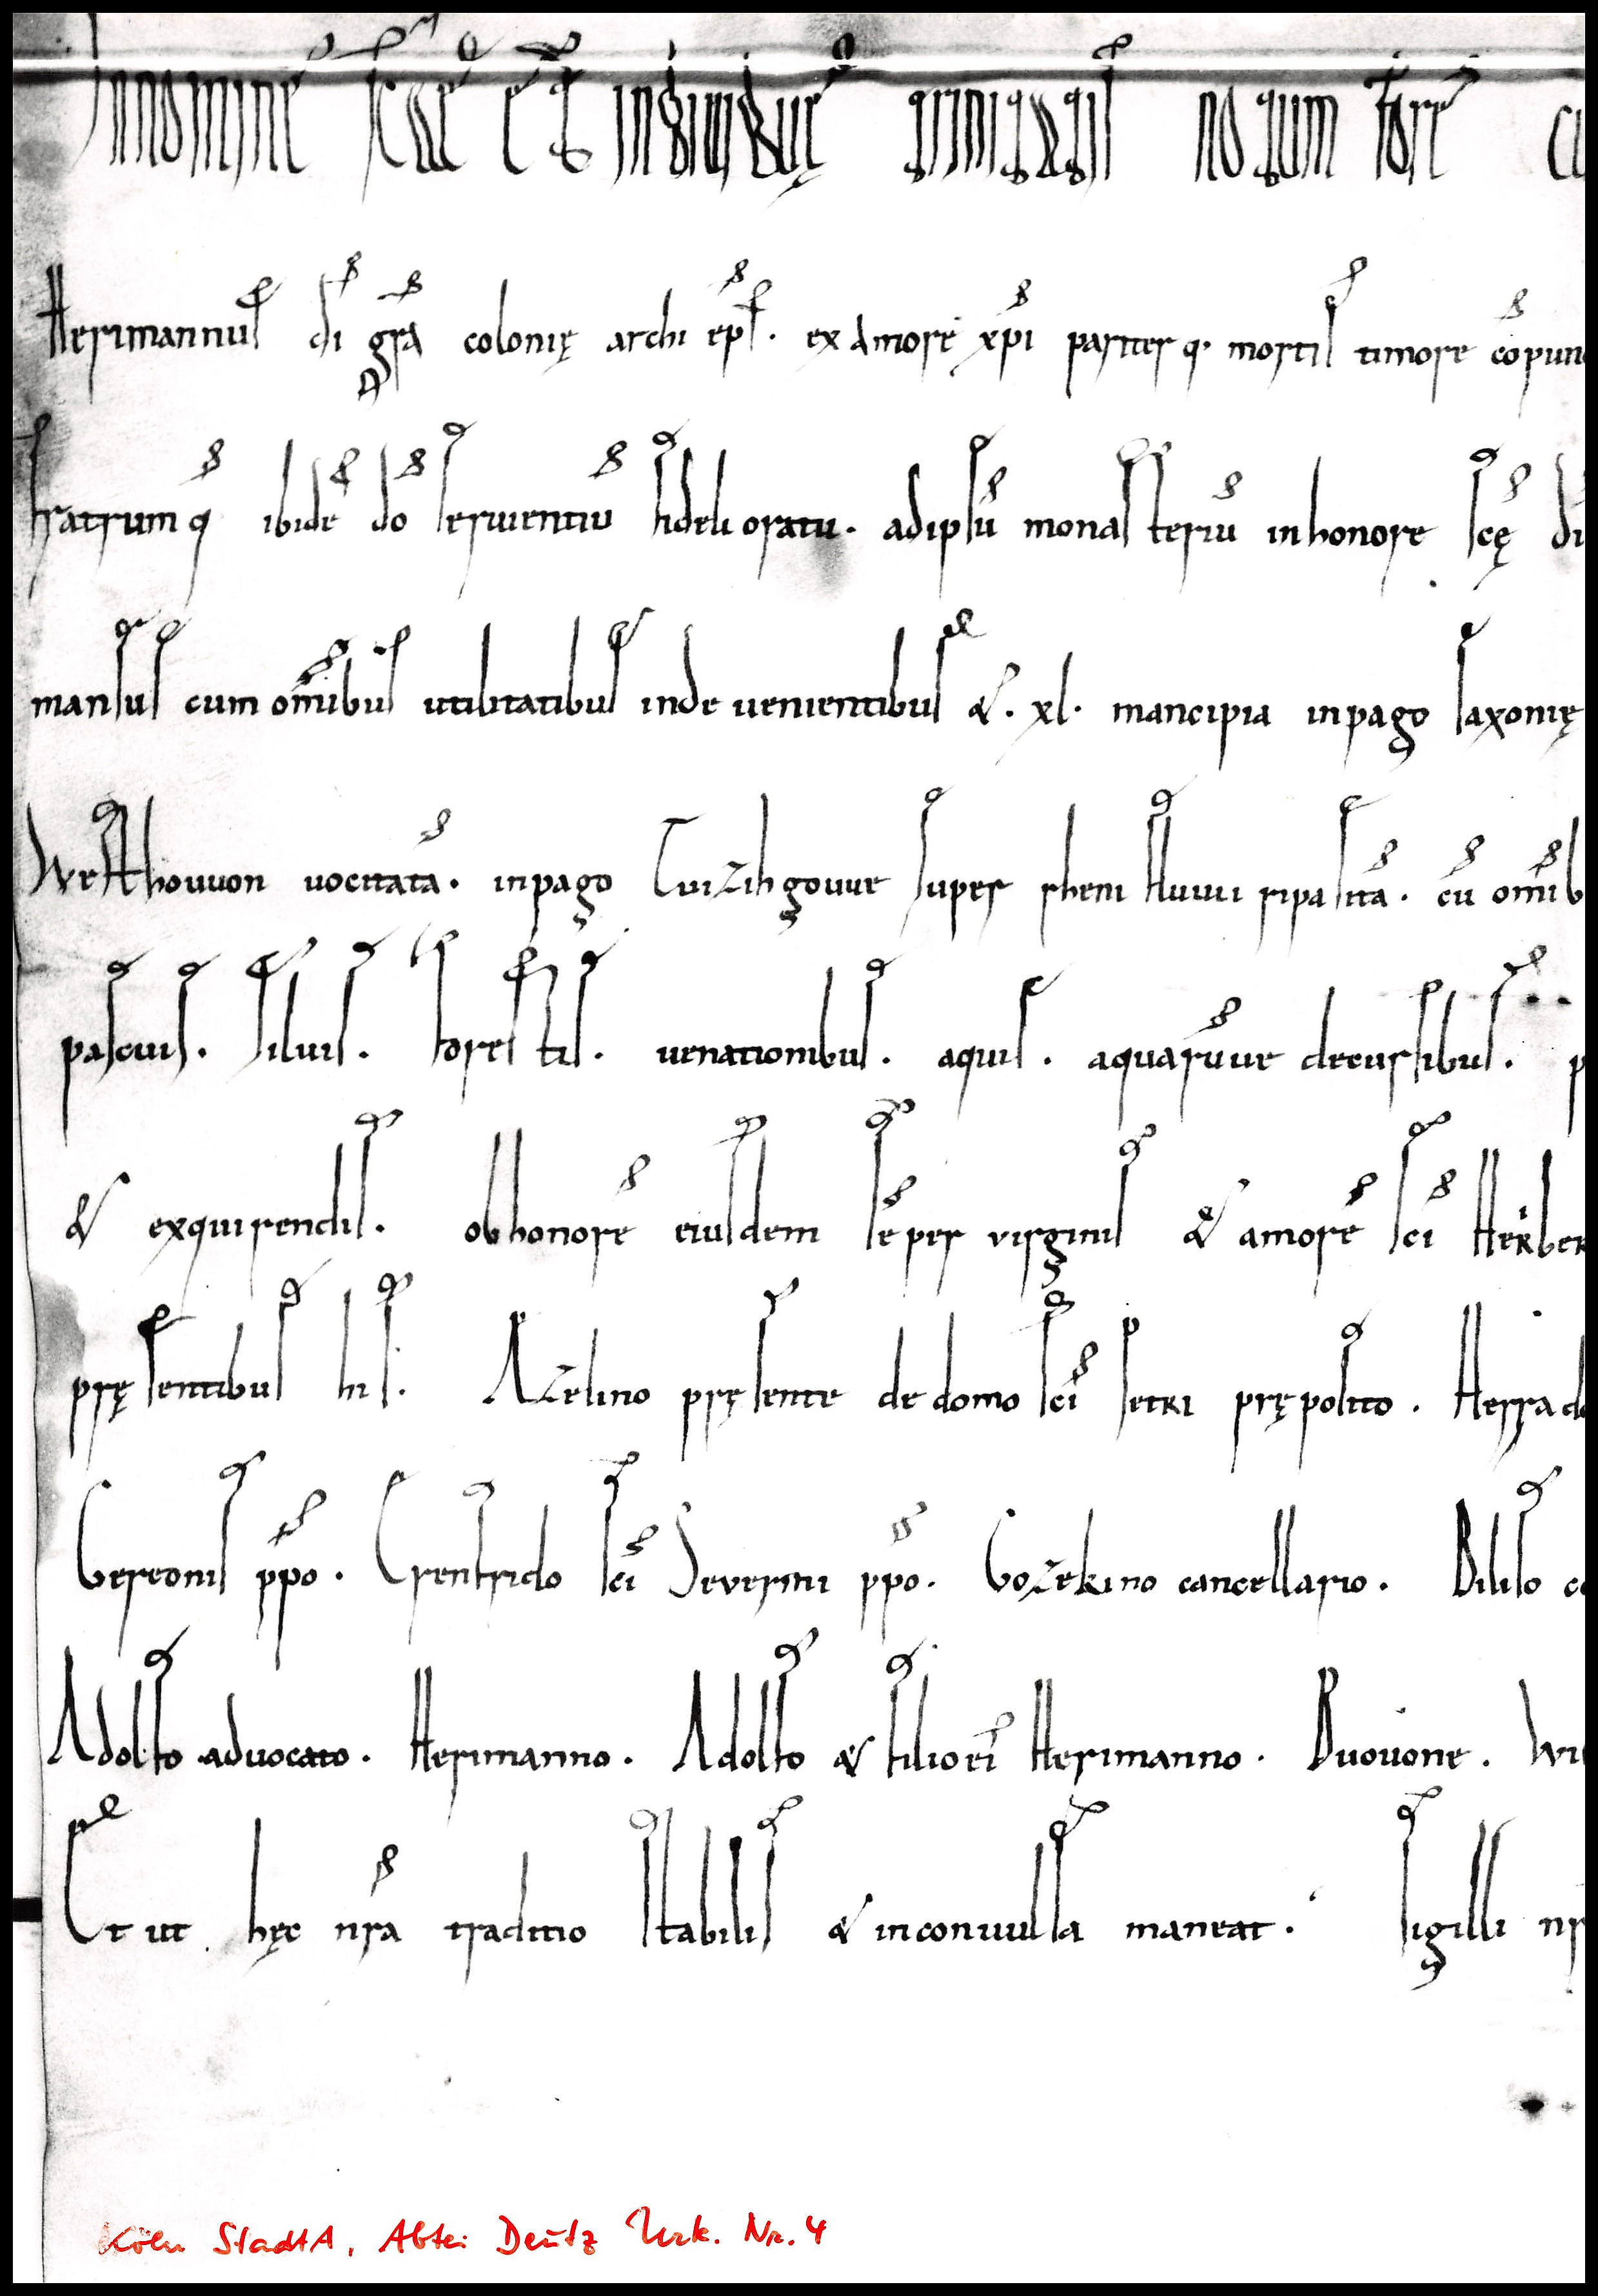 In nomine sc̄ae et indiuiduę trinitatis notum fore
Herimannus dī gr̄a colonię archi ep̄s. ex amore xp̄i pariterq. mortis timore cōpun
fratrumq ibidē dō seruientiū fideli oratu. ad ipsū monasteriū in honore sc̄ę
mansus cum om̄ibus utilitatibus inde uenientibus &. xl. mancipia in pago saxonię
Westhouuon uocitatā. in pago Tuizihgouue super rheni fluuii ripā sitā. cū om̄ib
pascuis. siluis. forestis. uenationibus. aquis. aquarūue decursibus. p
& exquirendis. ob honorē eiusdem sēper virginis & amorē sc̄i Heriber
pręsentibus his. Azelino pręsente de domo sc̄i petri pręposito.
Gereonis pp̄o. Erenfrido sc̄i Severini pp̄o. Gozekino cancellario. Biliso
Adolfo advocato. Herimanno. Adolfo & filio ei Herimanno. Buouone. Wi
Et ut hęc nr̄a traditio stabilis & inconuulsa maneat. sigilli nr
Köln StadtA, Abtei Deutz Urk. Nr. 4